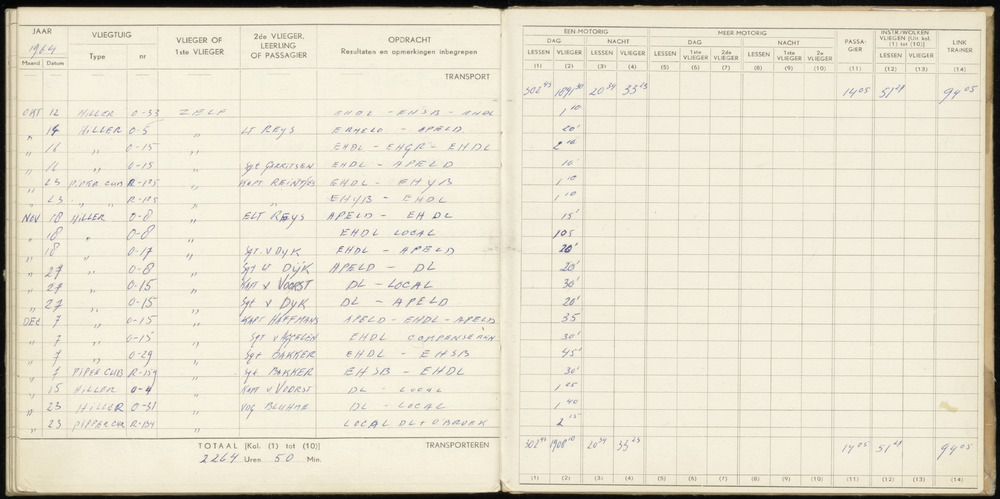 JAAR VLIEGTUIG VLIEGER OF 1ste VLIEGER 2de VLIEGER, LEERLING OF PASSAGIER OPDRACHT Resultaten en opmerkingen inbegrepen
1964 Type nr
Maand Datum
TRANSPORT
OKT 12 HILLER O-33 ZELF EHDL - EHSB - EHDL
" 14 HILLER O-5 " LT REYS ERMELO - APELD
" 16 " O-15 " EHDL - EHGR - EHDL
" 16 " O-15 " Sgt GERRITSEN EHDL - APELD
" 23 PIPER CUB R-175 " KAPT REINTJES EHDL - EHYB
" 23 " R-175 " " EHYB - EHDL
NOV 18 HILLER O-8 " ELT REYS APELD - EHDL
" 18 " O-8 " EHDL LOCAL
" 18 " O-17 " Sgt. V DYK EHDL - APELD
" 27 " O-8 " Sgt V DŸK APELD - DL
" 27 " O-15 " KAPT V VOORST DL - LOCAL
" 27 " O-15 " Sgt V DYK DL - APELD
DEC 7 " O-15 " KAPT HAFFMANS APELD - EHDL - APELD
" 7 " O-15 " SGT EHDL COMPENSEREN
" 7 " O-29 " Sgt BAKKER EHDL - EHSB
" 7 PIPER CUB R-159 " Sgt BAKKER EHSB - EHDL
" 15 HILLER O-4 " KAPT V VOORST DL - LOCAL
" 23 HILLER O-31 " VDG BLUHME DL - LOCAL
" 23 PIPPER CUB " LOCAL DL +
TOTAAL [Kol. (1) tot (10)] TRANSPORTEREN
2264 Uren 50 Min.
EEN MOTORIG MEER MOTORIG PASSA-GIER INSTR./WOLKEN VLIEGEN (Uit kol. (1) tot (10)] LINK TRAINER
DAG NACHT DAG NACHT
LESSEN VLIEGER LESSEN VLIEGER LESSEN 1ste VLIEGER 2de VLIEGER LESSEN 1ste VLIEGER 2e VLIEGER LESSEN VLIEGER
(1) (2) (3) (4) (5) (6) (7) (8) (9) (10) (11) (12) (13) (14)
302 45 20 34 33 23 14 05 51 28 94 05
1 10
20'
2 10
10'
1 10
1 10
15'
1 05
20'
20'
30'
20'
35
30'
45'
30'
1 05
1 40
2 15
302 45 1908 10 20 34 33 23 14 05 51 28 94 05
(1) (2) (3) (4) (5) (6) (7) (8) (9) (10) (11) (12) (13) (14)